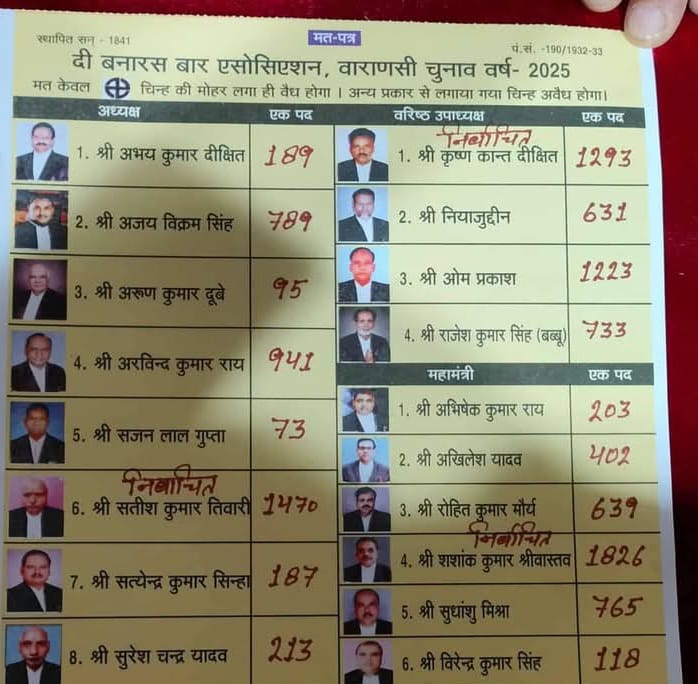 स्थापित सन् - 1841
मत-पत्र
पं.सं. -190/1932-33
दी बनारस बार एसोसिएशन, वाराणसी चुनाव वर्ष- 2025
मत केवल चिन्ह की मोहर लगा ही वैध होगा । अन्य प्रकार से लगाया गया चिन्ह अवैध होगा।
अध्यक्ष एक पद
1. श्री अभय कुमार दीक्षित 189
2. श्री अजय विक्रम सिंह 789
3. श्री अरूण कुमार दूबे 95
4. श्री अरविन्द कुमार राय 941
5. श्री सजन लाल गुप्ता 73
निर्वाचित
6. श्री सतीश कुमार तिवारी 1470
7. श्री सत्येन्द्र कुमार सिन्हा 187
8. श्री सुरेश चन्द्र यादव 213
वरिष्ठ उपाध्यक्ष एक पद
निर्वाचित
1. श्री कृष्ण कान्त दीक्षित 1293
2. श्री नियाजुद्दीन 631
3. श्री ओम प्रकाश 1223
4. श्री राजेश कुमार सिंह (बब्बू) 733
महामंत्री एक पद
1. श्री अभिषेक कुमार राय 203
2. श्री अखिलेश यादव 402
3. श्री रोहित कुमार मौर्य 639
निर्वाचित
4. श्री शशांक कुमार श्रीवास्तव 1826
5. श्री सुधांशु मिश्रा 765
6. श्री विरेन्द्र कुमार सिंह 118